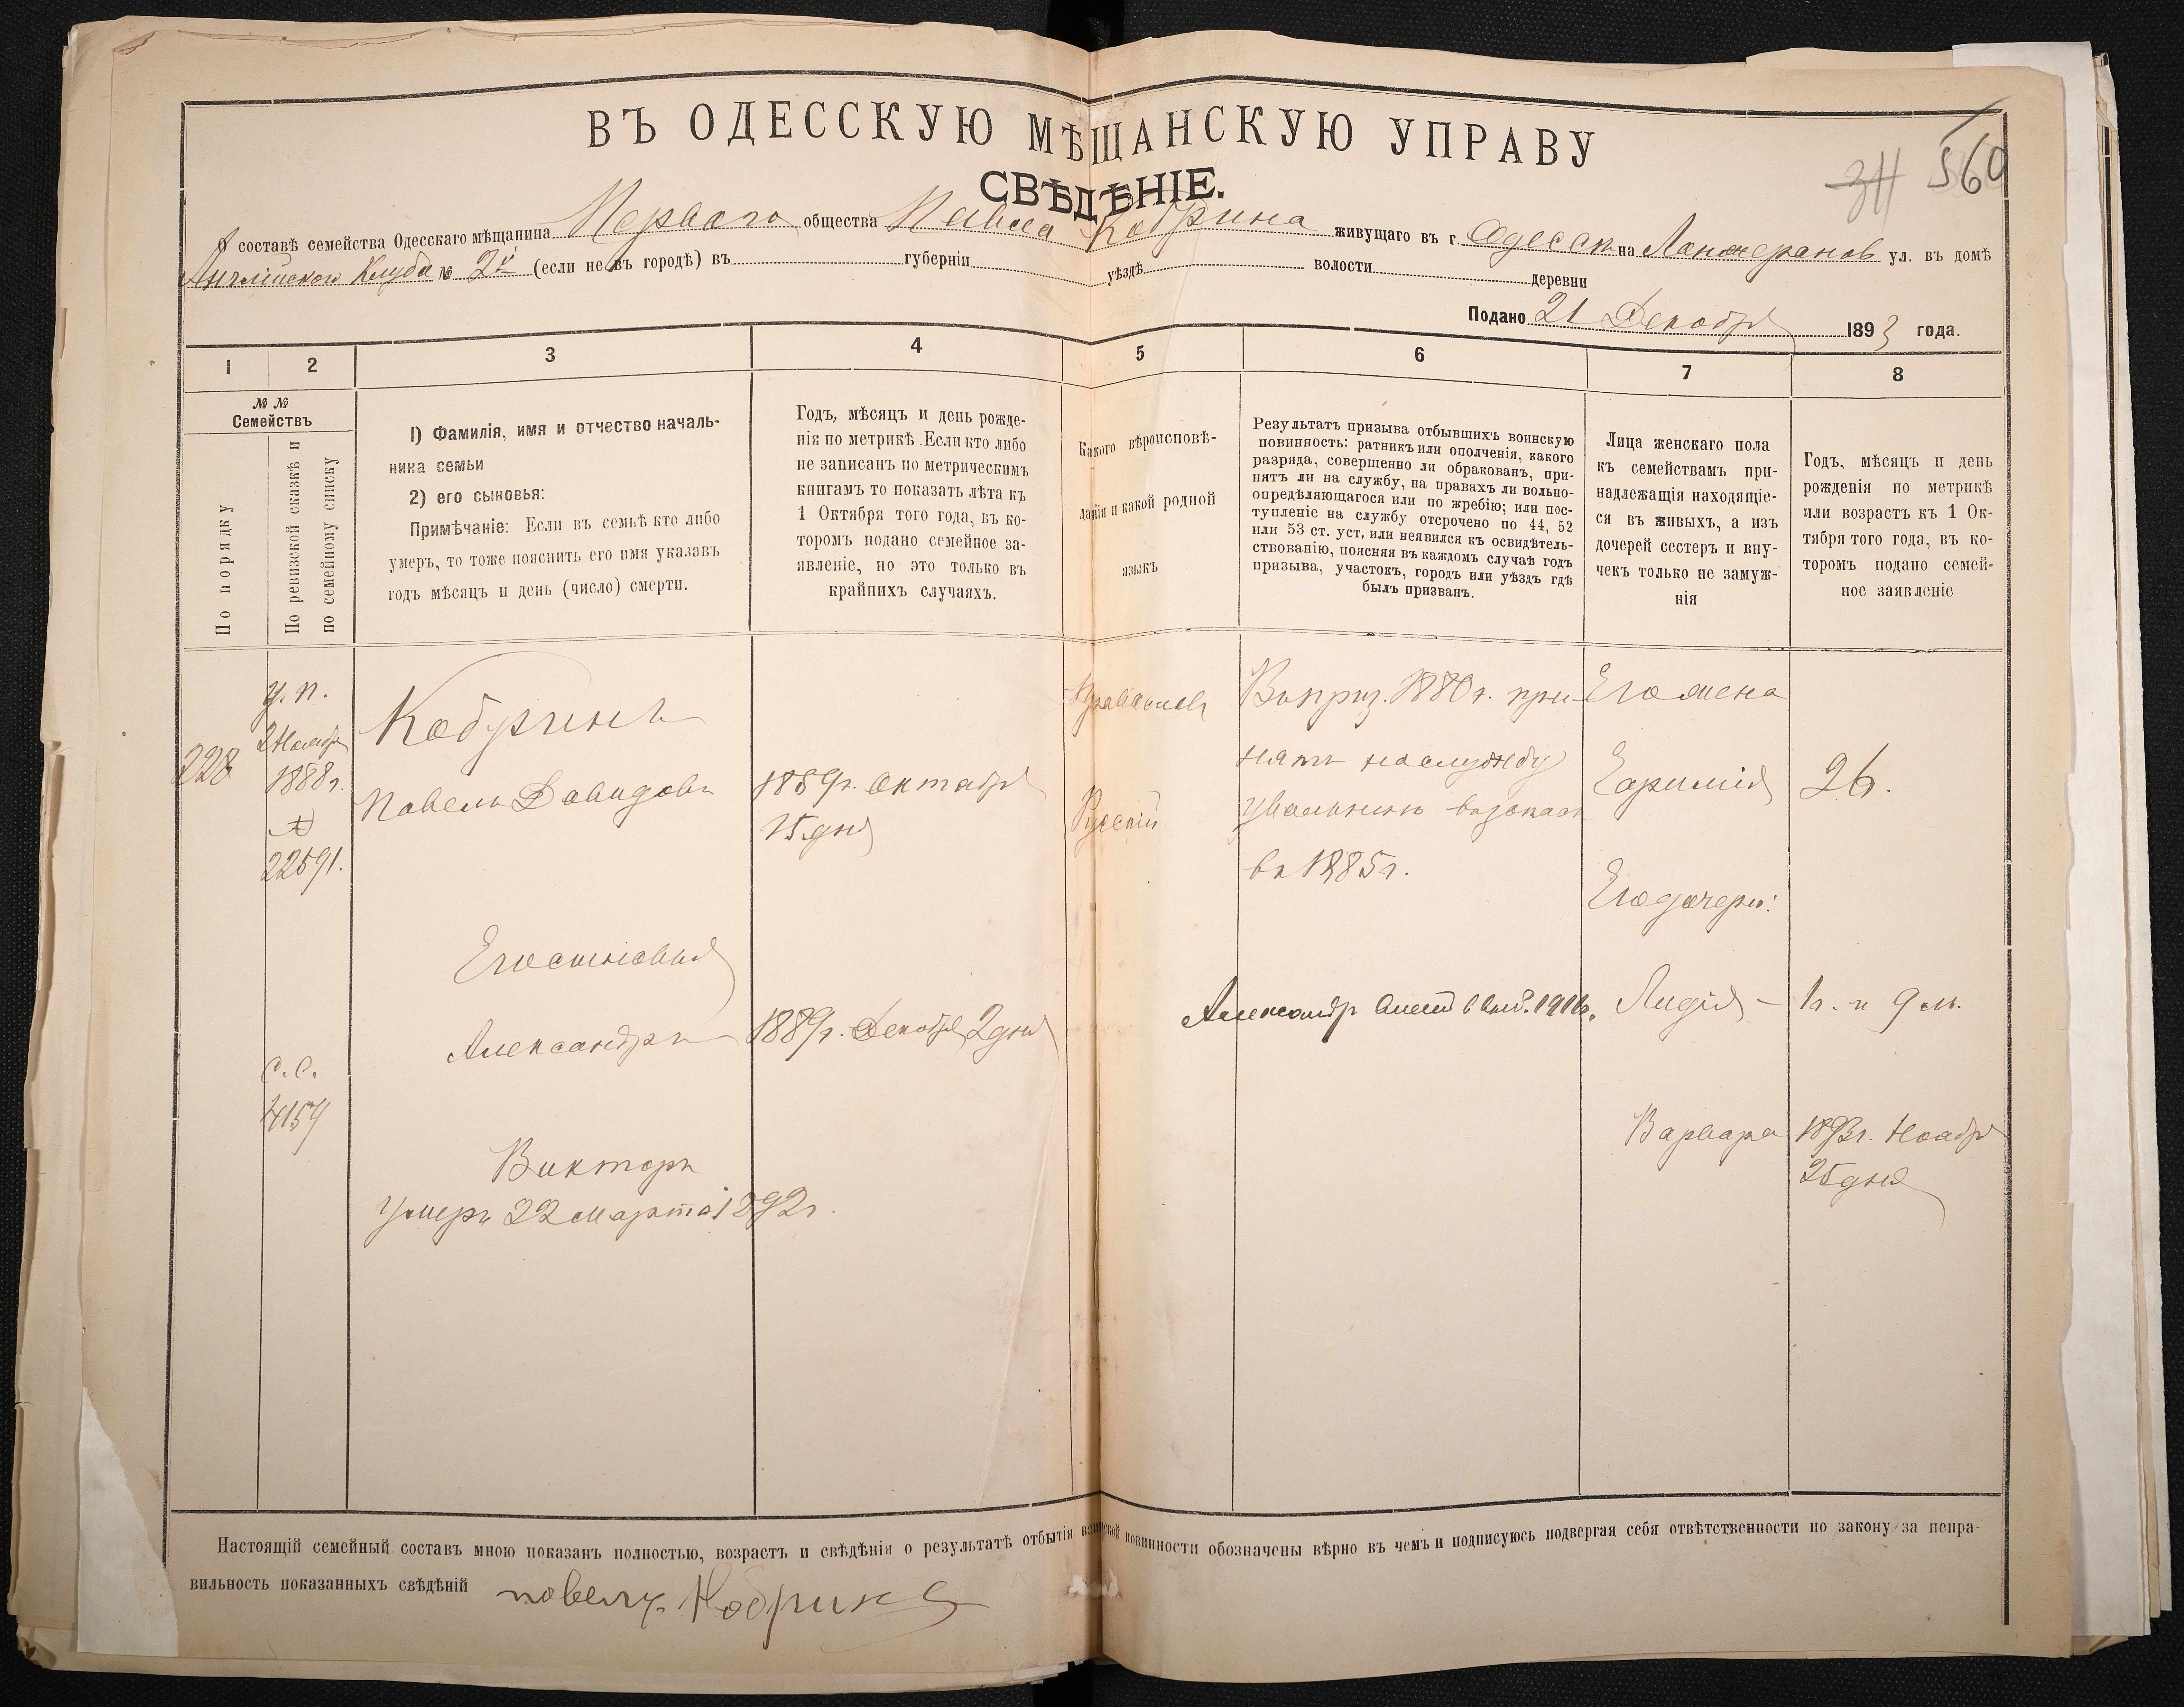 ВЪ ОДЕССКУЮ МѢЩАНСКУЮ УПРАВУ
СВѢДѢНІЕ.
560
О составѣ семейства Одесскаго мѣщанина Перваго общества Павла Кобрина живущаго въ г. Одессѣ на Ланжеронов ул. въ домѣ
Англійскаго Клуба № 2й (если не въ городѣ) въ губерніи уѣздѣ волости деревни
Подано 21 Декабря 1893 года.
1 2 3 4 5 6 7 8
№ №
Семействъ
По порядку
По ревизской сказкѣ и
по семейному списку
1) Фамилія, имя и отчество началь-
ника семьи
2) его сыновья:
Примѣчаніе: Если въ семьѣ кто либо
умеръ, то тоже пояснить его имя указавъ
годъ мѣсяцъ и день (число) смерти.
Годъ, мѣсяцъ и день рожде-
нія по метрикѣ. Если кто либо
не записанъ по метрическимъ
книгамъ то показать лѣта къ
1 Октября того года, въ ко-
торомъ подано семейное за-
явленіе, но это только въ
крайнихъ случаяхъ.
Какого вѣроисповѣ-
данія и какой родной
языкъ
Результатъ призыва отбывшихъ воинскую
повинность: ратникъ или ополченія, какого
разряда, совершенно ли обракованъ, при-
нятъ ли на службу, на правахъ ли вольно-
опредѣляющагося или по жребію; или пос-
тупленіе на службу отсрочено по 44, 52
или 53 ст. уст, или неявился къ освидѣтель-
ствованію, поясняя въ каждомъ случаѣ годъ
призыва, участокъ, городъ или уѣздъ гдѣ
былъ призванъ.
Лица женскаго пола
къ семействамъ при-
надлежащія находящіе-
ся въ живыхъ, а изъ
дочерей сестеръ и вну-
чекъ только не замуж-
нія
Годъ, мѣсяцъ и день
рожденія по метрикѣ
или возрастъ къ 1 Ок-
тября того года, въ ко-
торомъ подано семей-
ное заявленіе
228
у. п.
2 Ноября
1888 г.
№
22591.
с. с.
4154
Кобринъ
Павелъ Давидовъ
1859 г. Октября
15 дня
Православ
Русскій
Въ приз. 1880 г. при-
нятъ на службу
уволенъ въ запасъ
въ 1885 г.
Его жена
26.
Его дочери:
Его сыновья
Александръ
1889 г. Декабря 2 дня
Александр 1911 г.
Лидія - 1 г. и 9 м.
Викторъ
умеръ 22 марта 1892 г.
Варвара
1893 г. Ноября
25 дня
Настоящій семейный составъ мною показанъ полностью, возрастъ и свѣдѣнія о результатѣ отбытія воинской повинности обозначены вѣрно въ чемъ и подписуюсь подвергая себя отвѣтственности по закону за непра-
вильность показанныхъ свѣдѣній павелъ Кобринъ